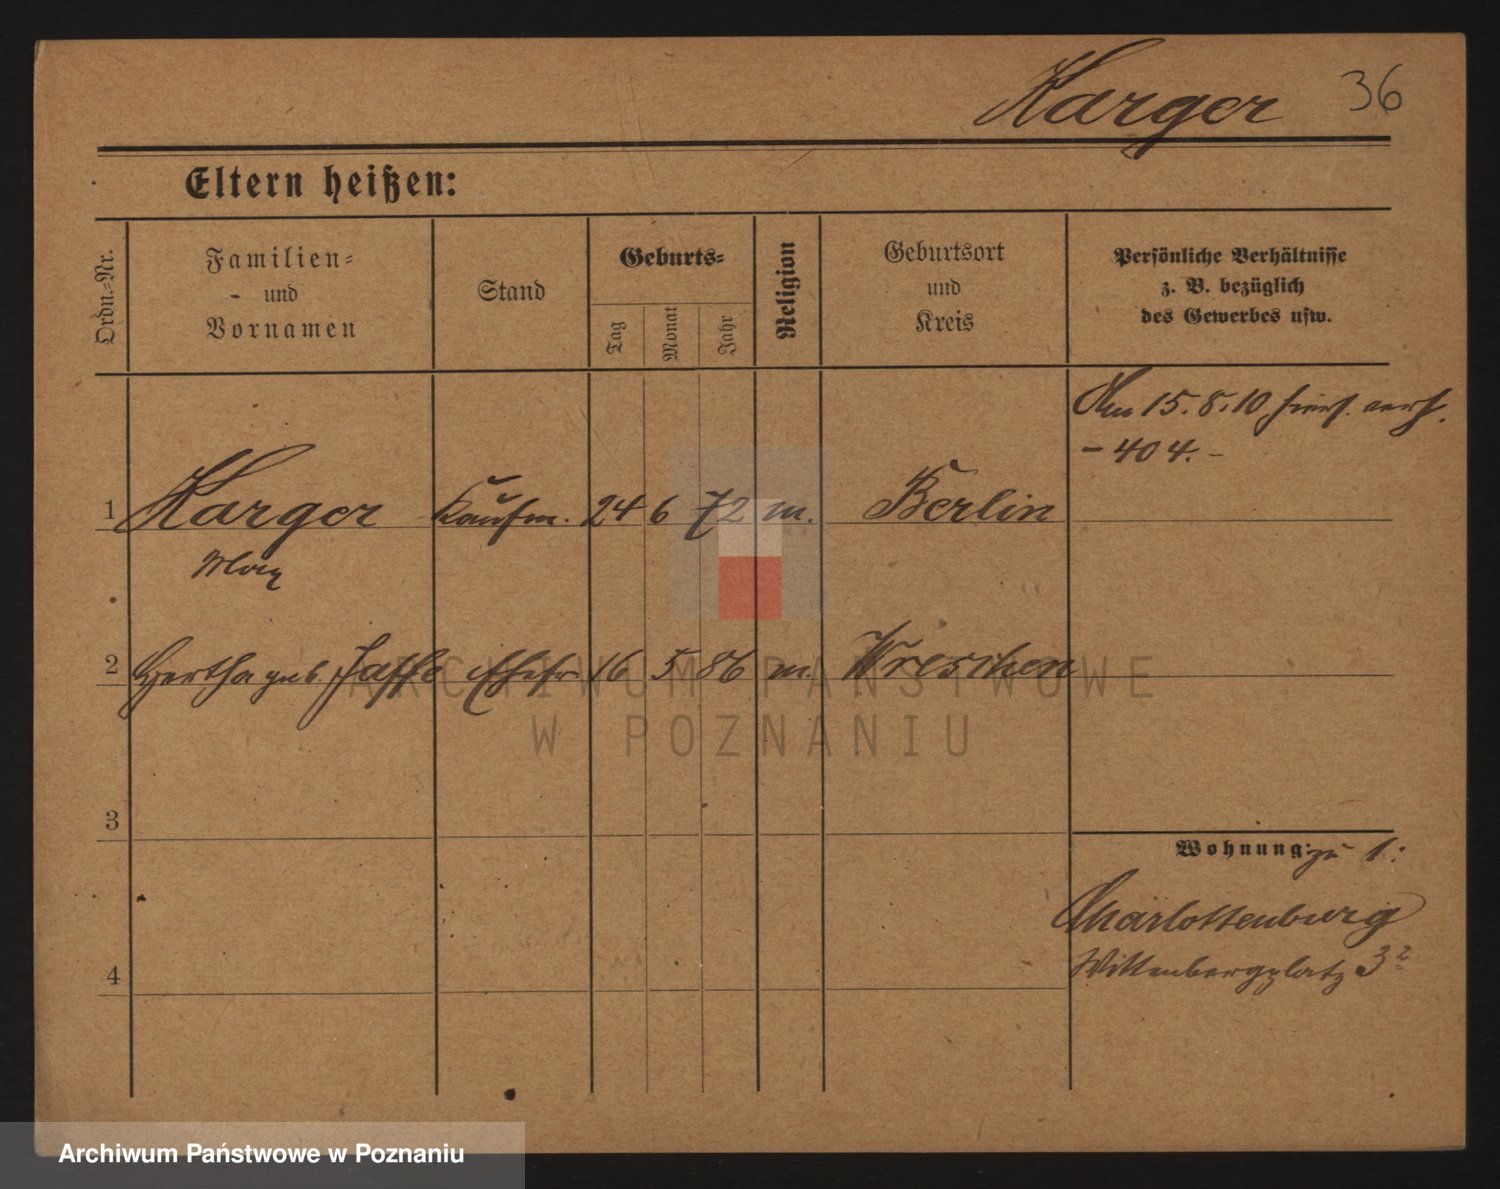 Karger 36
Eltern heißen:
Ordn.-Nr.
Familien-
und
Vornamen
Stand
Geburts-
Tag
Monat
Jahr
Religion
Geburtsort
und
Kreis
Persönliche Verhältnisse
z. B. bezüglich
des Gewerbes usw.
Am 15.8.10 hier
- 404. -
1 Karger Kaufm. 24 6 72 m. Berlin
Max
2 Hertha geb. Jaffe Ehefr 16 5 86 m. Wreschen
3
Wohnung: zu 1:
Charlottenburg
4
Wittenbergplatz 3²
ARCHIWUM PAŃSTWOWE
W POZNANIU
Archiwum Państwowe w Poznaniu